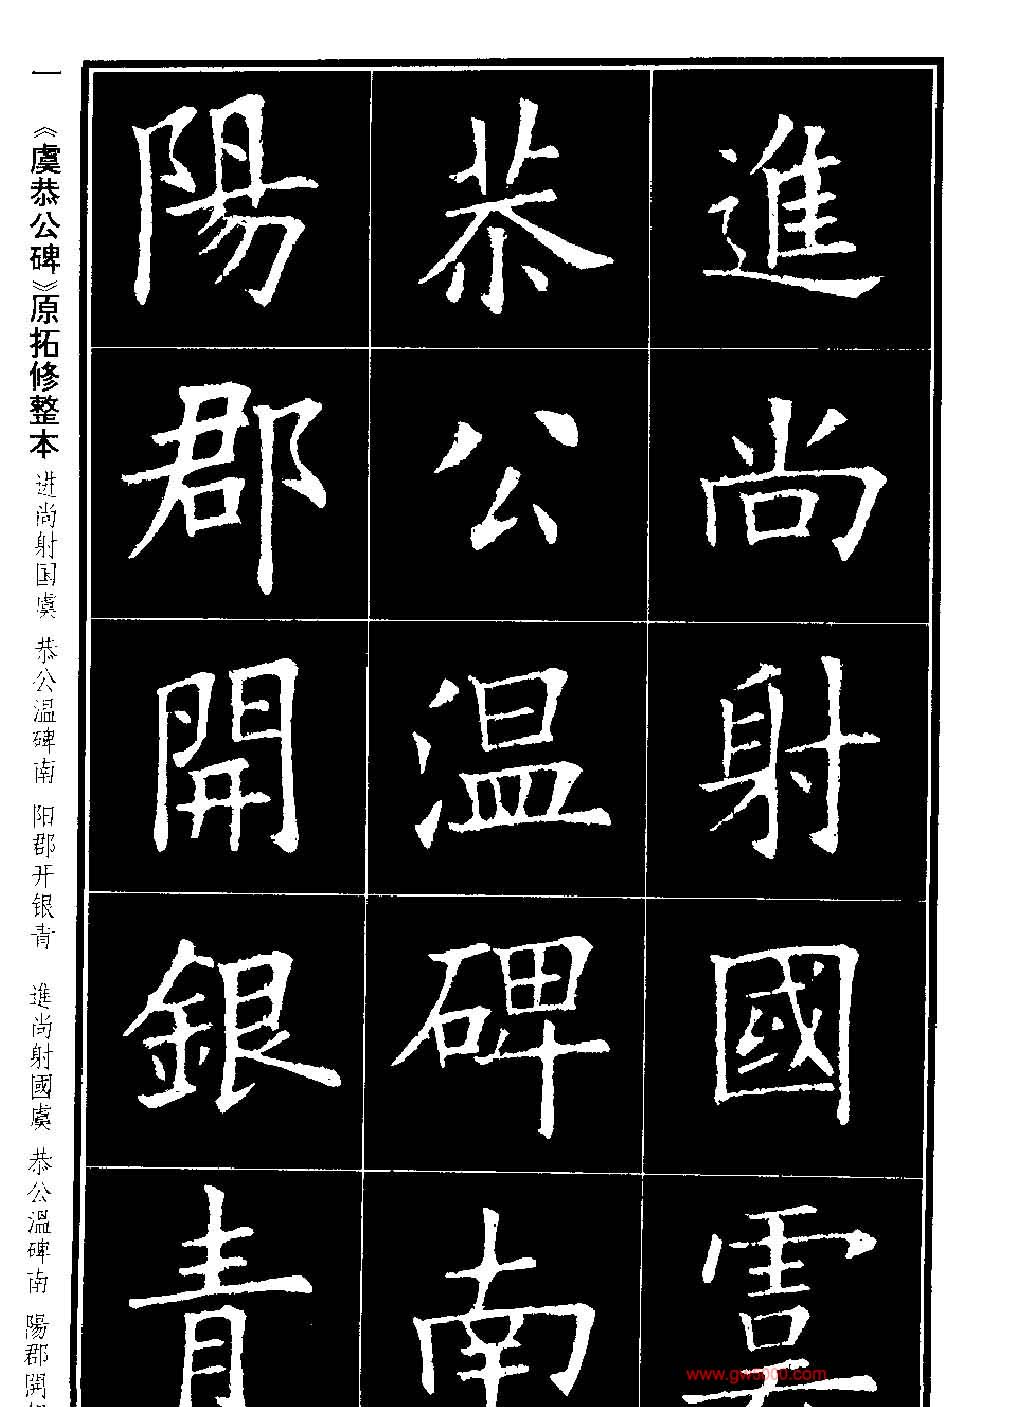 進尚射國虞
恭公温碑南
陽郡開銀青
一 《虞恭公碑》原拓修整本 进尚射国虞 恭公温碑南 阳郡开银青 進尚射國虞 恭公溫碑南 陽郡開
www.gw5000.com